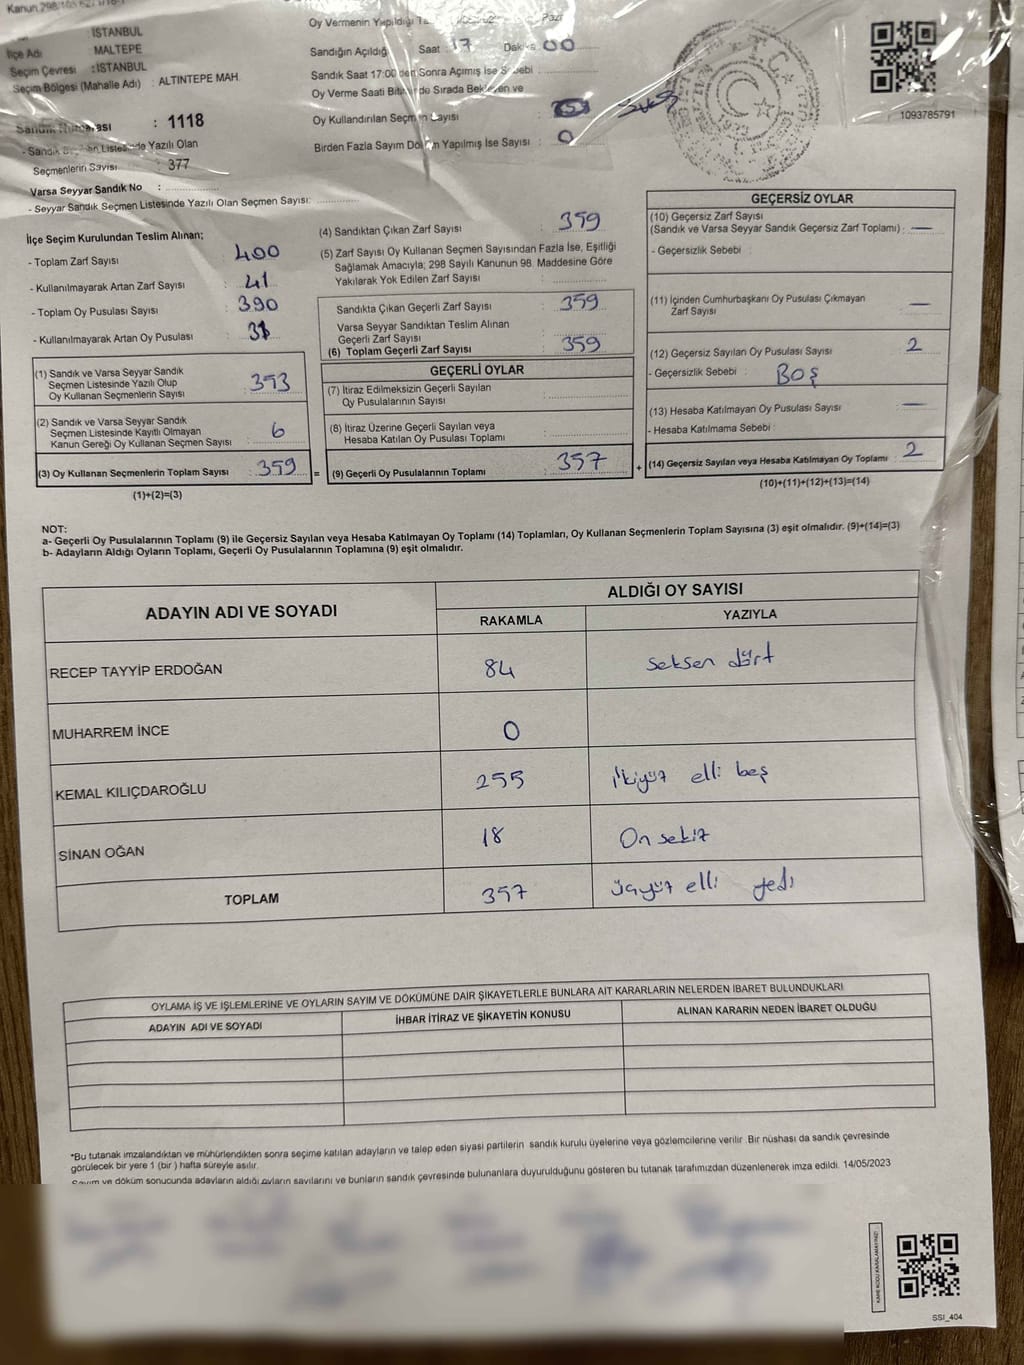 Kanun 298/105
İSTANBUL
İlçe Adı MALTEPE
Seçim Çevresi : İSTANBUL
Seçim Bölgesi (Mahalle Adı) : ALTINTEPE MAH.
Sandık : 1118
- Sandık Listesinde Yazılı Olan
Seçmenlerin Sayısı : 377
Varsa Seyyar Sandık No :
- Seyyar Sandık Seçmen Listesinde Yazılı Olan Seçmen Sayısı:
Oy Vermenin Yapıldığı
Sandığın Açıldığı Saat 17 Dakika 00
Sandık Saat 17:00 den Sonra Açılmış İse Sebebi :
Oy Verme Saati Sırada Bekleyen ve
Oy Kullandırılan Seçmen Sayısı :
Birden Fazla Sayım Yapılmış İse Sayısı : 0
T.C.
1093785791
İlçe Seçim Kurulundan Teslim Alınan;
- Toplam Zarf Sayısı : 400
- Kullanılmayarak Artan Zarf Sayısı : 41
- Toplam Oy Pusulası Sayısı : 390
- Kullanılmayarak Artan Oy Pusulası : 31
(1) Sandık ve Varsa Seyyar Sandık
Seçmen Listesinde Yazılı Olup
Oy Kullanan Seçmenlerin Sayısı : 353
(2) Sandık ve Varsa Seyyar Sandık
Seçmen Listesinde Kayıtlı Olmayan
Kanun Gereği Oy Kullanan Seçmen Sayısı : 6
(3) Oy Kullanan Seçmenlerin Toplam Sayısı : 359 =
(1)+(2)=(3)
(4) Sandıktan Çıkan Zarf Sayısı : 359
(5) Zarf Sayısı Oy Kullanan Seçmen Sayısından Fazla İse, Eşitliği
Sağlamak Amacıyla; 298 Sayılı Kanunun 98. Maddesine Göre
Yakılarak Yok Edilen Zarf Sayısı :
Sandıkta Çıkan Geçerli Zarf Sayısı : 359
Varsa Seyyar Sandıktan Teslim Alınan
Geçerli Zarf Sayısı :
(6) Toplam Geçerli Zarf Sayısı : 359
GEÇERLİ OYLAR
(7) İtiraz Edilmeksizin Geçerli Sayılan
Oy Pusulalarının Sayısı :
(8) İtiraz Üzerine Geçerli Sayılan veya
Hesaba Katılan Oy Pusulası Toplamı :
(9) Geçerli Oy Pusulalarının Toplamı : 357 +
GEÇERSİZ OYLAR
(10) Geçersiz Zarf Sayısı
(Sandık ve Varsa Seyyar Sandık Geçersiz Zarf Toplamı) : —
- Geçersizlik Sebebi :
(11) İçinden Cumhurbaşkanı Oy Pusulası Çıkmayan
Zarf Sayısı : —
(12) Geçersiz Sayılan Oy Pusulası Sayısı : 2
- Geçersizlik Sebebi : BOŞ
(13) Hesaba Katılmayan Oy Pusulası Sayısı : —
- Hesaba Katılmama Sebebi :
(14) Geçersiz Sayılan veya Hesaba Katılmayan Oy Toplamı : 2
(10)+(11)+(12)+(13)=(14)
NOT:
a- Geçerli Oy Pusulalarının Toplamı (9) ile Geçersiz Sayılan veya Hesaba Katılmayan Oy Toplamı (14) Toplamları, Oy Kullanan Seçmenlerin Toplam Sayısına (3) eşit olmalıdır. (9)+(14)=(3)
b- Adayların Aldığı Oyların Toplamı, Geçerli Oy Pusulalarının Toplamına (9) eşit olmalıdır.
ADAYIN ADI VE SOYADI ALDIĞI OY SAYISI
RAKAMLA YAZIYLA
RECEP TAYYİP ERDOĞAN 84 seksen dört
MUHARREM İNCE 0
KEMAL KILIÇDAROĞLU 255 ikiyüz elli beş
SİNAN OĞAN 18 On sekiz
TOPLAM 357 üçyüz elli yedi
OYLAMA İŞ VE İŞLEMLERİNE VE OYLARIN SAYIM VE DÖKÜMÜNE DAİR ŞİKAYETLERLE BUNLARA AİT KARARLARIN NELERDEN İBARET BULUNDUKLARI
ADAYIN ADI VE SOYADI İHBAR İTİRAZ VE ŞİKAYETİN KONUSU ALINAN KARARIN NEDEN İBARET OLDUĞU
*Bu tutanak imzalandıktan ve mühürlendikten sonra seçime katılan adayların ve talep eden siyasi partilerin sandık kurulu üyelerine veya gözlemcilerine verilir. Bir nüshası da sandık çevresinde
görülecek bir yere 1 (bir ) hafta süreyle asılır.
Sayım ve döküm sonucunda adayların aldığı oyların sayılarını ve bunların sandık çevresinde bulunanlara duyurulduğunu gösteren bu tutanak tarafımızdan düzenlenerek imza edildi. 14/05/2023
KARE KODU KARALAMAYINIZ!
SSI_404